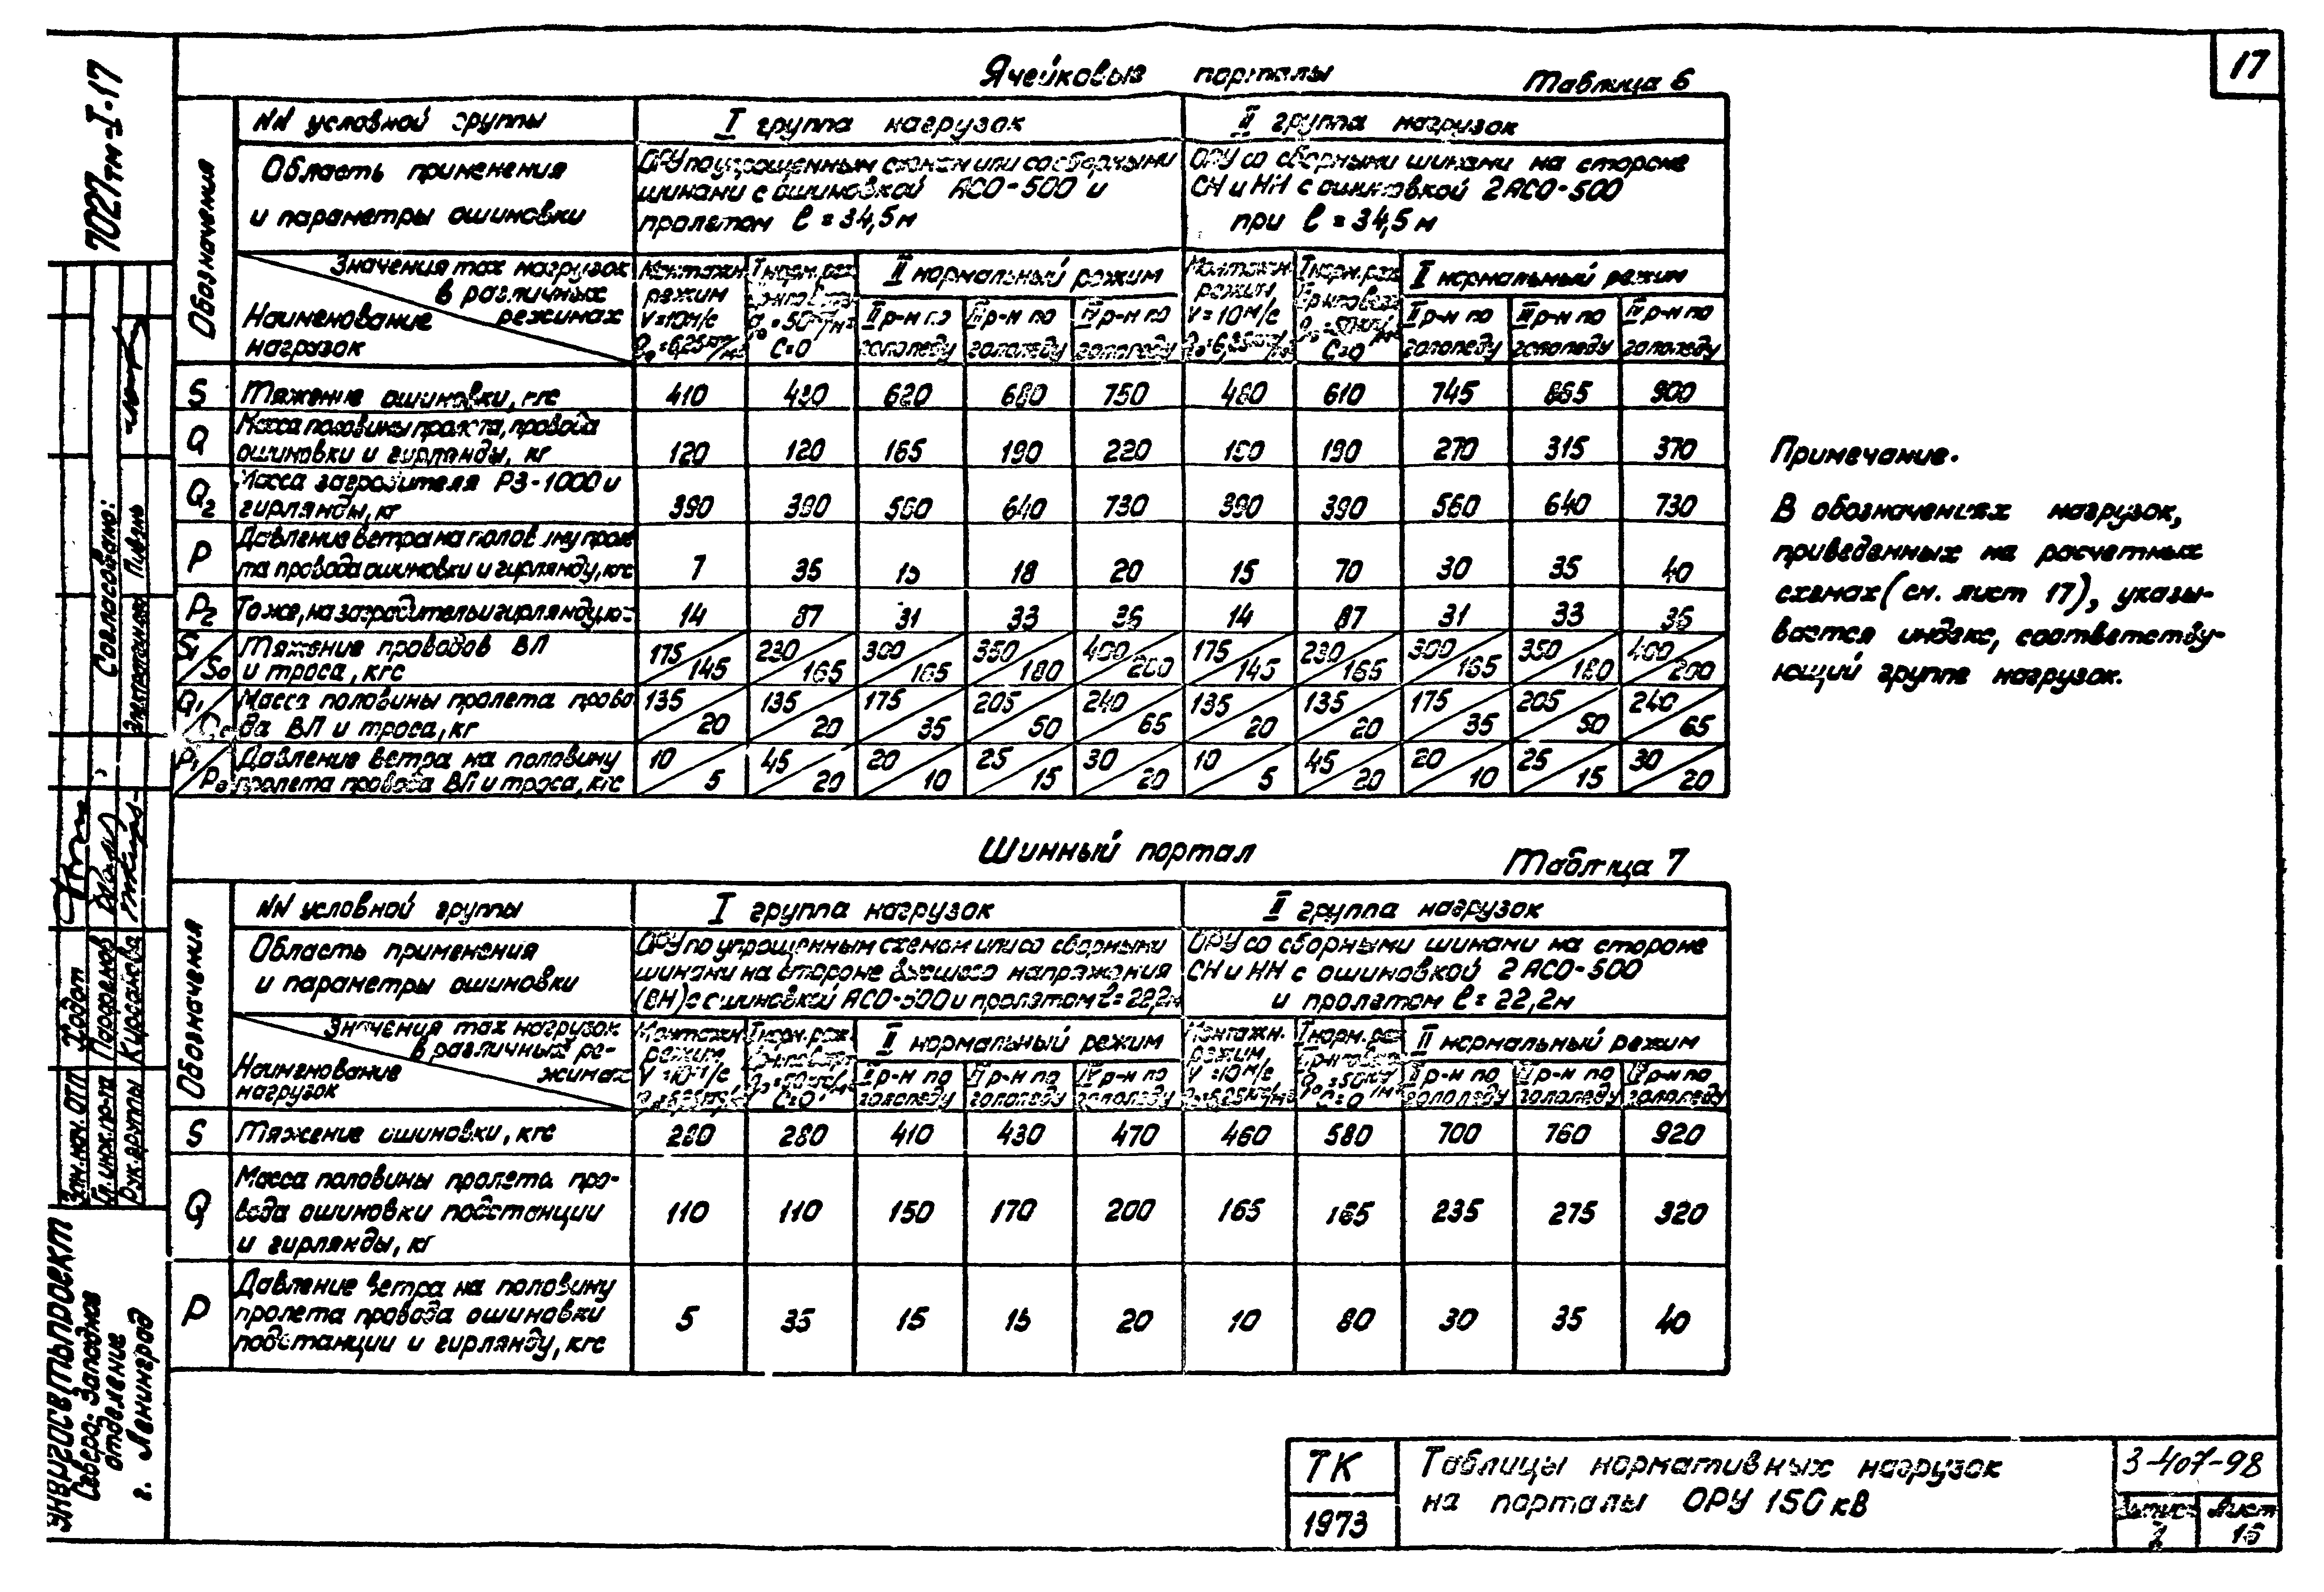 17
7027тм-I-17
Ячейковые порталы
Таблица 6
Обозначения
NN условной группы
I группа нагрузок
II группа нагрузок
Область применения
и параметры ошиновки
ОРУ по упрощенным схемам или со сборными
шинами с ошиновкой АСО-500 и
пролетом l = 34,5м
ОРУ со сборными шинами на стороне
СН и НН с ошиновкой 2АСО-500
при l = 34,5м
Значения max нагрузок
в различных
режимах
Наименование
нагрузок
Монтажн.
режим
V=10м/с
I норм. реж.
C=0
II нормальный режим
II р-н по
гололеду
III р-н по
гололеду
IV р-н по
гололеду
Монтажн.
режим
V=10м/с
I норм. реж.
C=0
I нормальный режим
II р-н по
гололеду
III р-н по
гололеду
IV р-н по
гололеду
S Тяжение ошиновки, кгс 410 620 680 750 610 745 865 900
Q Масса половины пролета, провода
ошиновки и гирлянды, кг 120 120 165 190 220 190 190 270 315 370
Q2 Масса заградителя РЗ-1000 и
гирлянды, кг 390 390 560 640 730 390 390 560 640 730
P Давление ветра на половину проле
та провода ошиновки и гирлянду, кгс 7 35 15 18 20 15 70 30 35 40
P2 То же, на заградитель и гирлянду, кгс 14 87 31 33 36 14 87 31 33 36
S1/S0 Тяжение проводов ВЛ
и троса, кгс 175/145 230/165 300/165 350/180 400/200 175/145 230/165 300/165 350/180 400/200
Q1/Q0 Масса половины пролета прово
да ВЛ и троса, кг 135/20 135/20 175/35 205/50 240/65 135/20 135/20 175/35 205/50 240/65
P1/P0 Давление ветра на половину
пролета провода ВЛ и троса, кгс 10/5 45/20 20/10 25/15 30/20 10/5 45/20 20/10 25/15 30/20
Примечание.
В обозначениях нагрузок,
приведенных на расчетных
схемах (см. лист 17), указы-
вается индекс, соответству-
ющий группе нагрузок.
Шинный портал
Таблица 7
Обозначения
NN условной группы
I группа нагрузок
II группа нагрузок
Область применения
и параметры ошиновки
ОРУ по упрощенным схемам или со сборными
шинами на стороне высшего напряжения
(ВН) с ошиновкой АСО-500 и пролетом l = 22,2м
ОРУ со сборными шинами на стороне
СН и НН с ошиновкой 2АСО-500
и пролетом l = 22,2м
Значения max нагрузок
в различных ре-
жимах
Наименование
нагрузок
Монтажн.
режим,
V=10м/с
I норм. реж.
C=0
II нормальный режим
II р-н по
гололеду
III р-н по
гололеду
IV р-н по
гололеду
Монтажн.
режим,
V=10м/с
I норм. реж.
C=0
II нормальный режим
II р-н по
гололеду
III р-н по
гололеду
IV р-н по
гололеду
S Тяжение ошиновки, кгс 280 280 410 430 470 460 580 700 760 920
Q Масса половины пролета про-
вода ошиновки подстанции
и гирлянды, кг 110 110 150 170 200 165 165 235 275 320
P Давление ветра на половину
пролета провода ошиновки
подстанции и гирлянду, кгс 5 35 15 15 20 10 80 30 35 40
Согласовано:
Электротехнич
Пивэнь
Зам. нач. ОТП
Гл. инж. пр-та Парфенов
Рук. группы Кирсанова
Энергосетьпроект
Северо-Западное
отделение
г. Ленинград
ТК
1973
Таблицы нормативных нагрузок
на порталы ОРУ 150 кВ
3-407-98
Выпуск
Лист